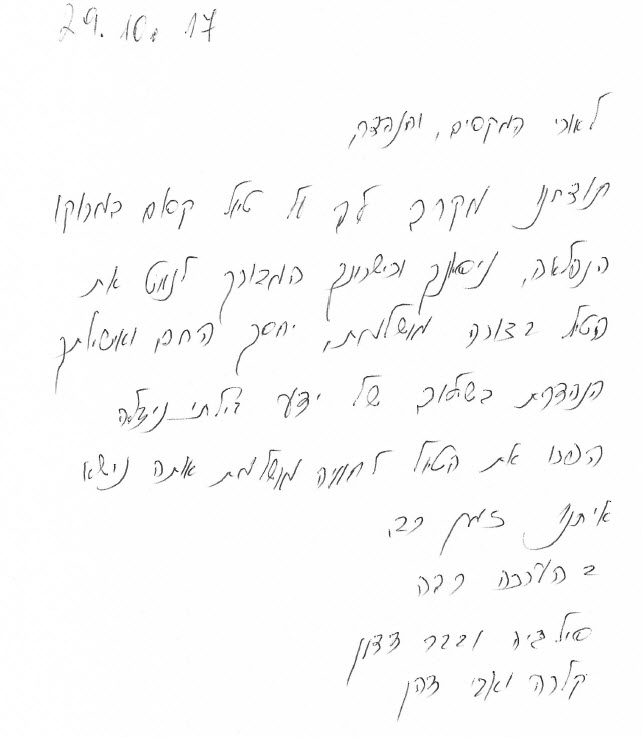 29.10.17
לאורי המקסים, והנהדר,
תודתנו מקרב לב על טיול קסום במרוקו
הנפלאה, ניסיונך וכישרונך המבורך לנווט את
הטיול בצורה מושלמת, יחסך החם, ואישיותך
הנהדרת בשילוב של ידע בלתי נידלה
הפכו את הטיול לחוויה מושלמת אותה נישא
איתנו זמן רב.
בהערכה רבה
סילביה ודדון
קלרה ואבי דהן